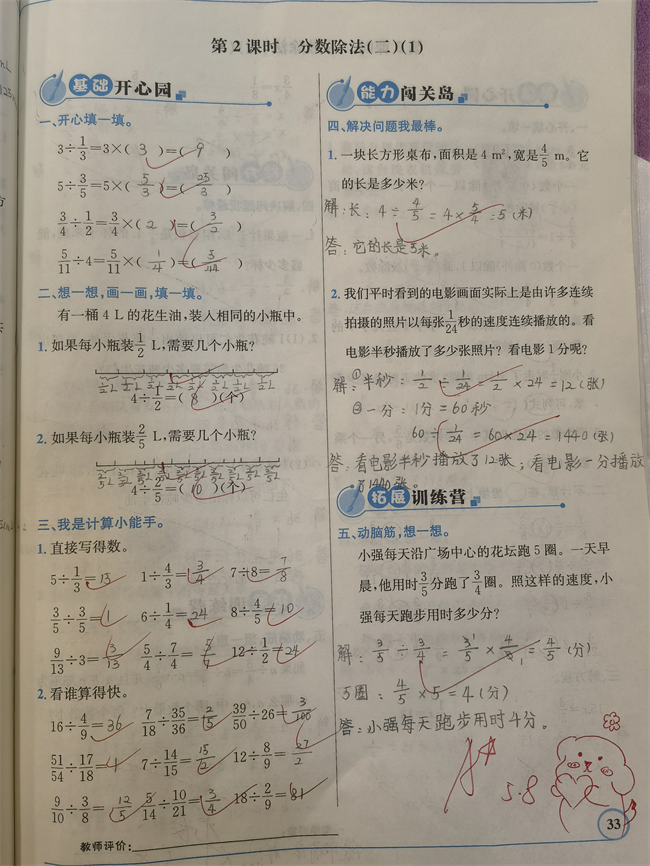 第2课时 分数除法(二)(1)
基础开心园
一、开心填一填。
3÷1/3=3×( 3 )=( 9 )
5÷3/5=5×( 5/3 )=( 25/3 )
3/4÷1/2=3/4×( 2 )=( 3/2 )
5/11÷4=5/11×( 1/4 )=( 5/44 )
二、想一想,画一画,填一填。
有一桶 4 L 的花生油,装入相同的小瓶中。
1. 如果每小瓶装1/2 L,需要几个小瓶?
1/2L 1/2L 1/2L 1/2L 1/2L 1/2L 1/2L 1/2L
4÷1/2=( 8 )(个)
2. 如果每小瓶装2/5 L,需要几个小瓶?
2/5L 2/5L 2/5L 2/5L 2/5L 2/5L 2/5L 2/5L 2/5L 2/5L
4÷2/5=( 10 )(个)
三、我是计算小能手。
1. 直接写得数。
5÷1/3=13 1÷4/3=3/4 7÷8=7/8
3/5÷3/5=1 6÷1/4=24 8÷4/5=10
9/13÷3=3/13 5/4÷7/4=5/7 12÷1/2=24
2. 看谁算得快。
16÷4/9=36 7/18÷35/36=2/5 39/50÷26=3/100
51/54÷17/18=1 7÷14/15=15/2 12÷8/9=27/2
9/10÷3/8=12/5 5/14÷10/21=3/4 18÷2/9=81
教师评价:
能力闯关岛
四、解决问题我最棒。
1. 一块长方形桌布,面积是 4 m²,宽是4/5 m。它
的长是多少米?
解:长:4÷4/5=4×5/4=5(米)
答:它的长是5米。
2. 我们平时看到的电影画面实际上是由许多连续
拍摄的照片以每张1/24秒的速度连续播放的。看
电影半秒播放了多少张照片?看电影 1 分呢?
解:①半秒:1/2÷1/24=1/2×24=12(张)
②一分:1分=60秒
60÷1/24=60×24=1440(张)
答:看电影半秒播放了12张;看电影一分播放
了1440张。
拓展训练营
五、动脑筋,想一想。
小强每天沿广场中心的花坛跑 5 圈。一天早
晨,他用时3/5分跑了3/4圈。照这样的速度,小
强每天跑步用时多少分?
解:3/5÷3/4=3/5×4/3=4/5(分)
5圈:4/5×5=4(分)
答:小强每天跑步用时4分。
5.8
33